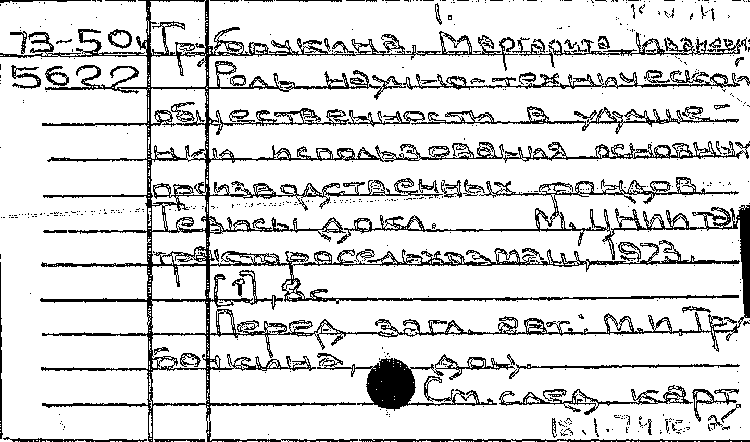 1.
73-50к Трубочкина, Маргарита Ивановн
5622 Роль научно-технической
общественности в улучше-
нии использования основных
производственных фондов.
Тезисы докл. М., ЦНИИТЭИ
тракторосельхозмаш, 1973.
[1], 8 с.
Перед загл. авт.: М.И. Тру
бочкина, доц.
См. след. карт
18.1.74.